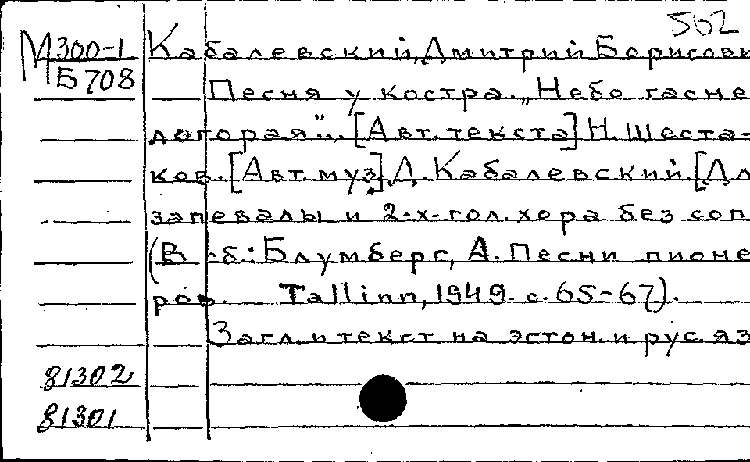 502
М300-1 Кабалевский, Дмитрий Борисови
Б708
Песня у костра. „Небо гасне
догорая"... [Авт. текста] Н. Шеста-
ков. [Авт. муз.] Д. Кабалевский. [Дл
запевалы и 2-х-гол. хора без соп
(В сб: Блумберг, А. Песни пионе
ров. Tallinn, 1949. с. 65-67).
Загл. и текст на эстон. и рус. яз
81302
81301